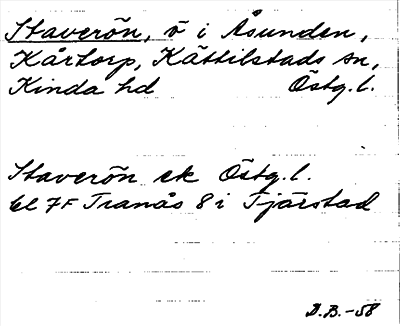 Staverön, ö i Åsunden,
Kårtorp, Kättilstads sn,
Kinda hd Östg.l.
Staverön ek Östg.l.
bl 7F Tranås 8 i Tjärstad
D.B.-58